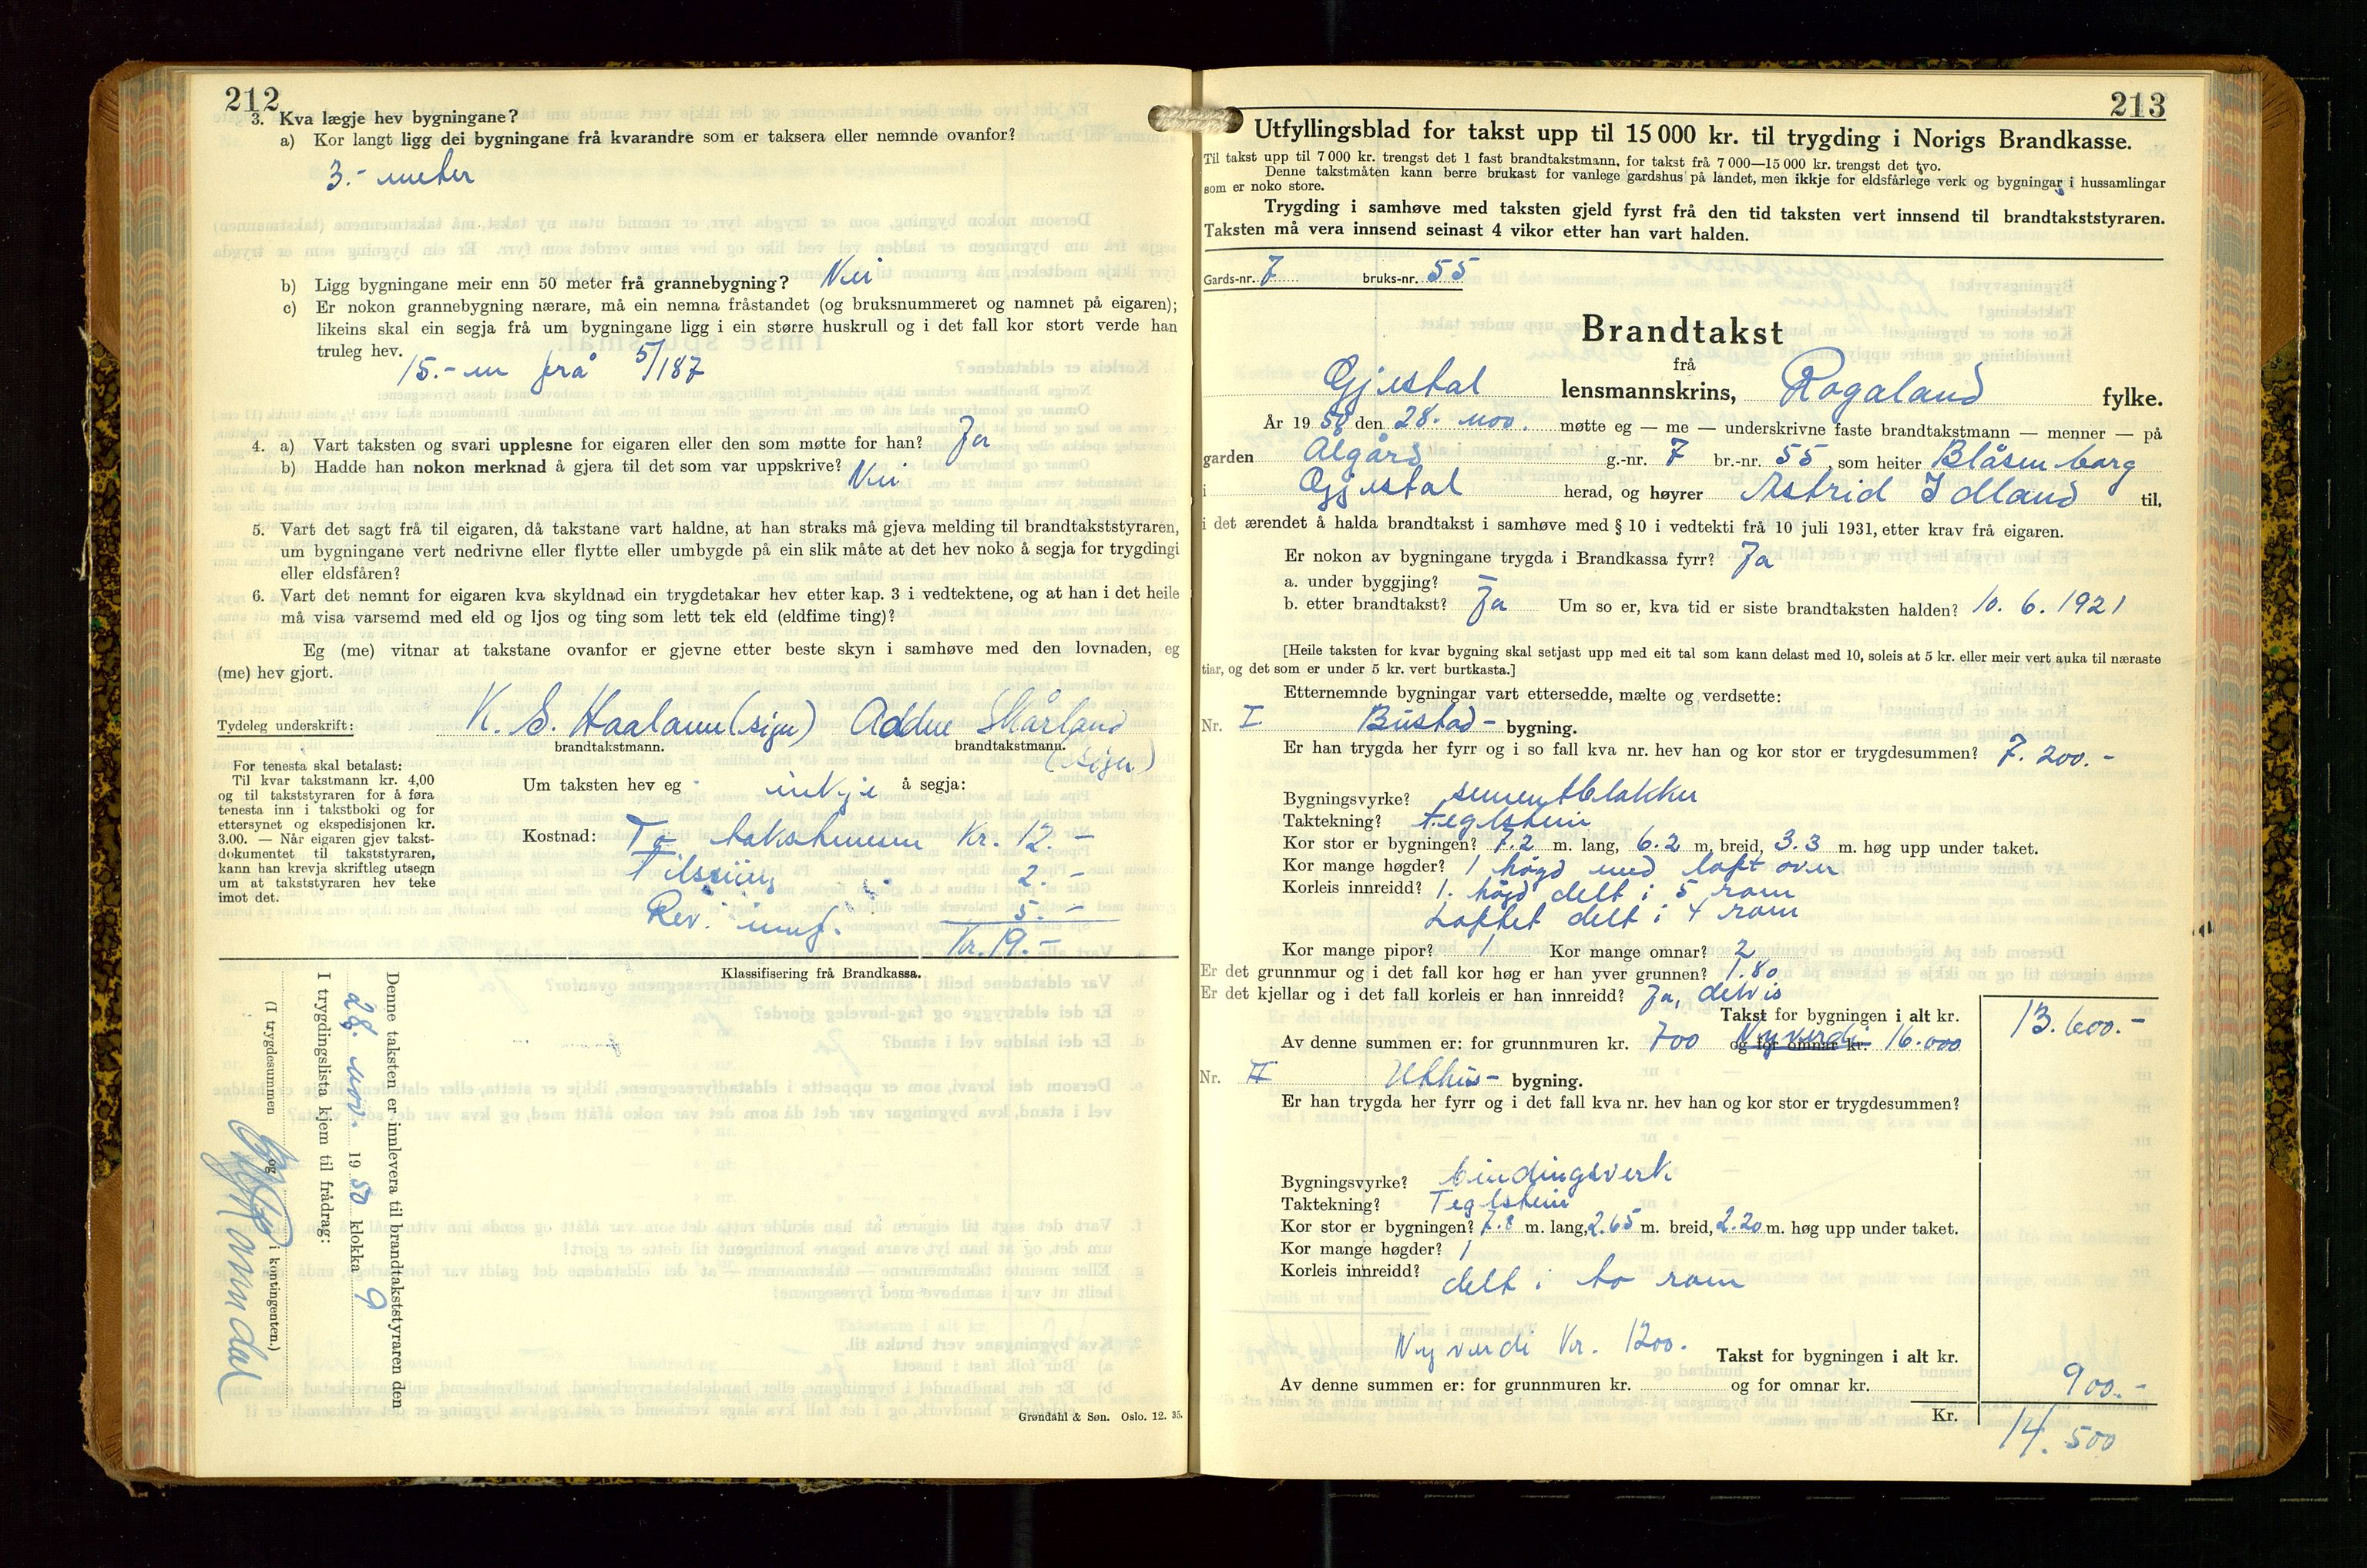 212
3. Kva lægje hev bygningane?
a) Kor langt ligg dei bygningane frå kvarandre som er taksera eller nemnde ovanfor?
3.- meter
b) Ligg bygningane meir enn 50 meter frå grannebygning? Nei
c) Er nokon grannebygning nærare, må ein nemna fråstandet (og bruksnummeret og namnet på eigaren);
likeins skal ein segja frå um bygningane ligg i ein større huskrull og i det fall kor stort verde han
truleg hev.
15.- m frå 5/187
4. a) Vart taksten og svari upplesne for eigaren eller den som møtte for han? Ja
b) Hadde han nokon merknad å gjera til det som var uppskrive? Nei
5. Vart det sagt frå til eigaren, då takstane vart haldne, at han straks må gjeva melding til brandtakststyraren,
um bygningane vert nedrivne eller flytte eller umbygde på ein slik måte at det hev noko å segja for trygdingi
eller eldsfåren?
6. Vart det nemnt for eigaren kva skyldnad ein trygdetakar hev etter kap. 3 i vedtektene, og at han i det heile
må visa varsemd med eld og ljos og ting som lett tek eld (eldfime ting)?
Eg (me) vitnar at takstane ovanfor er gjevne etter beste skyn i samhøve med den lovnaden, eg
(me) hev gjort.
Tydeleg underskrift: K. S. Haaland (sign) Addne Skårland
brandtakstmann. brandtakstmann. (sign)
For tenesta skal betalast:
Til kvar takstmann kr. 4,00
og til takststyraren for å føra
tenesta inn i takstboki og for
ettersynet og ekspedisjonen kr.
3.00. — Når eigaren gjev takst-
dokumentet til takststyraren,
kann han krevja skriftleg utsegn
um at takststyraren hev teke
imot det.
Um taksten hev eg inkje å segja:
Kostnad: To takstmenn Kr. 12.-
Tilsiing 2.-
Rev. 5.-
Kr. 19.-
Klassifisering frå Brandkassa.
Denne taksten er innlevera til brandtakststyraren den
28. nov. 1950 klokka 9
I trygdingslista kjem til frådrag:
(I trygdesummen og i kontingenten.)
Grøndahl & Søn. Oslo. 12. 35.
213
Utfyllingsblad for takst upp til 15 000 kr. til trygding i Norigs Brandkasse.
Til takst upp til 7 000 kr. trengst det 1 fast brandtakstmann, for takst frå 7 000—15 000 kr. trengst det tvo.
Denne takstmåten kann berre brukast for vanlege gardshus på landet, men ikkje for eldsfårlege verk og bygningar i hussamlingar
som er noko store.
Trygding i samhøve med taksten gjeld fyrst frå den tid taksten vert innsend til brandtakststyraren.
Taksten må vera innsend seinast 4 vikor etter han vart halden.
Gards-nr. 7 bruks-nr. 55
Brandtakst
frå
Gjestal lensmannskrins, Rogaland fylke.
År 1950 den 28. nov. møtte eg — me — underskrivne faste brandtakstmann — menner — på
garden Ålgård g.-nr. 7 br.-nr. 55, som heiter Blåsenborg
i Gjestal herad, og høyrer Astrid Idland til,
i det ærendet å halda brandtakst i samhøve med § 10 i vedtekti frå 10 juli 1931, etter krav frå eigaren.
Er nokon av bygningane trygda i Brandkassa fyrr? Ja
a. under byggjing? —
b. etter brandtakst? Ja Um so er, kva tid er siste brandtaksten halden? 10. 6. 1921
[Heile taksten for kvar bygning skal setjast upp med eit tal som kann delast med 10, soleis at 5 kr. eller meir vert auka til næraste
tiar, og det som er under 5 kr. vert burtkasta.]
Etternemnde bygningar vart ettersedde, mælte og verdsette:
Nr. I Bustad- bygning.
Er han trygda her fyrr og i so fall kva nr. hev han og kor stor er trygdesummen? 7.200.-
Bygningsvyrke? sementblokker
Taktekning? teglstein
Kor stor er bygningen? 7.2 m. lang, 6.2 m. breid, 3.3 m. høg upp under taket.
Kor mange høgder? 1 høgd med loft over
Korleis innreidd? 1. høgd delt i 5 rom
Loftet delt i 4 rom
Kor mange pipor? 1 Kor mange omnar? 2
Er det grunnmur og i det fall kor høg er han yver grunnen? 1.80
Er det kjellar og i det fall korleis er han innreidd? Ja, delvis
Takst for bygningen i alt kr. 13.600.-
Av denne summen er: for grunnmuren kr. 700 og for omnar kr. Ny verdi 16.000
Nr. II Uthus- bygning.
Er han trygda her fyrr og i det fall kva nr. hev han og kor stor er trygdesummen?
Bygningsvyrke? bindingsverk
Taktekning? Teglstein
Kor stor er bygningen? 7.8 m. lang, 2.65 m. breid, 2.20 m. høg upp under taket.
Kor mange høgder? 1
Korleis innreidd? delt i to rom
Ny verdi Kr. 1200. Takst for bygningen i alt kr. 900.-
Av denne summen er: for grunnmuren kr. og for omnar kr.
Kr. 14.500